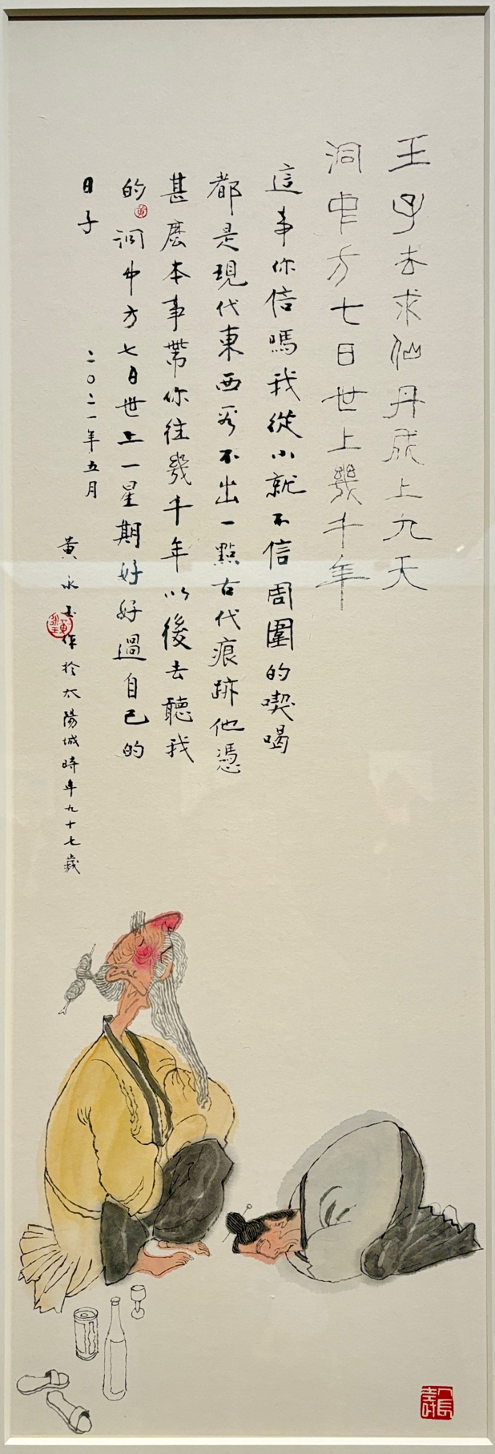 王子去求仙丹成上九天
洞中方七日世上幾千年
這事你信嗎我從小就不信周圍的喫喝
都是現代東西看不出一點古代痕跡他憑
甚麼本事帶你往幾千年以後去聽我
的洞中方七日世上一星期好好過自己的
日子
二〇二一年五月
黃永玉作於太陽城時年九十七歲
人長壽